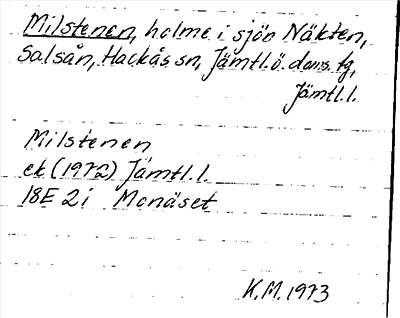 Milstenen, holme i sjön Näkten,
Salsån, Hackås sn, Jämtl.ö. doms. tg,
Jämtl.l.
Milstenen
ek (1972) Jämtl.l.
18E 2i Monäset
K.M. 1973